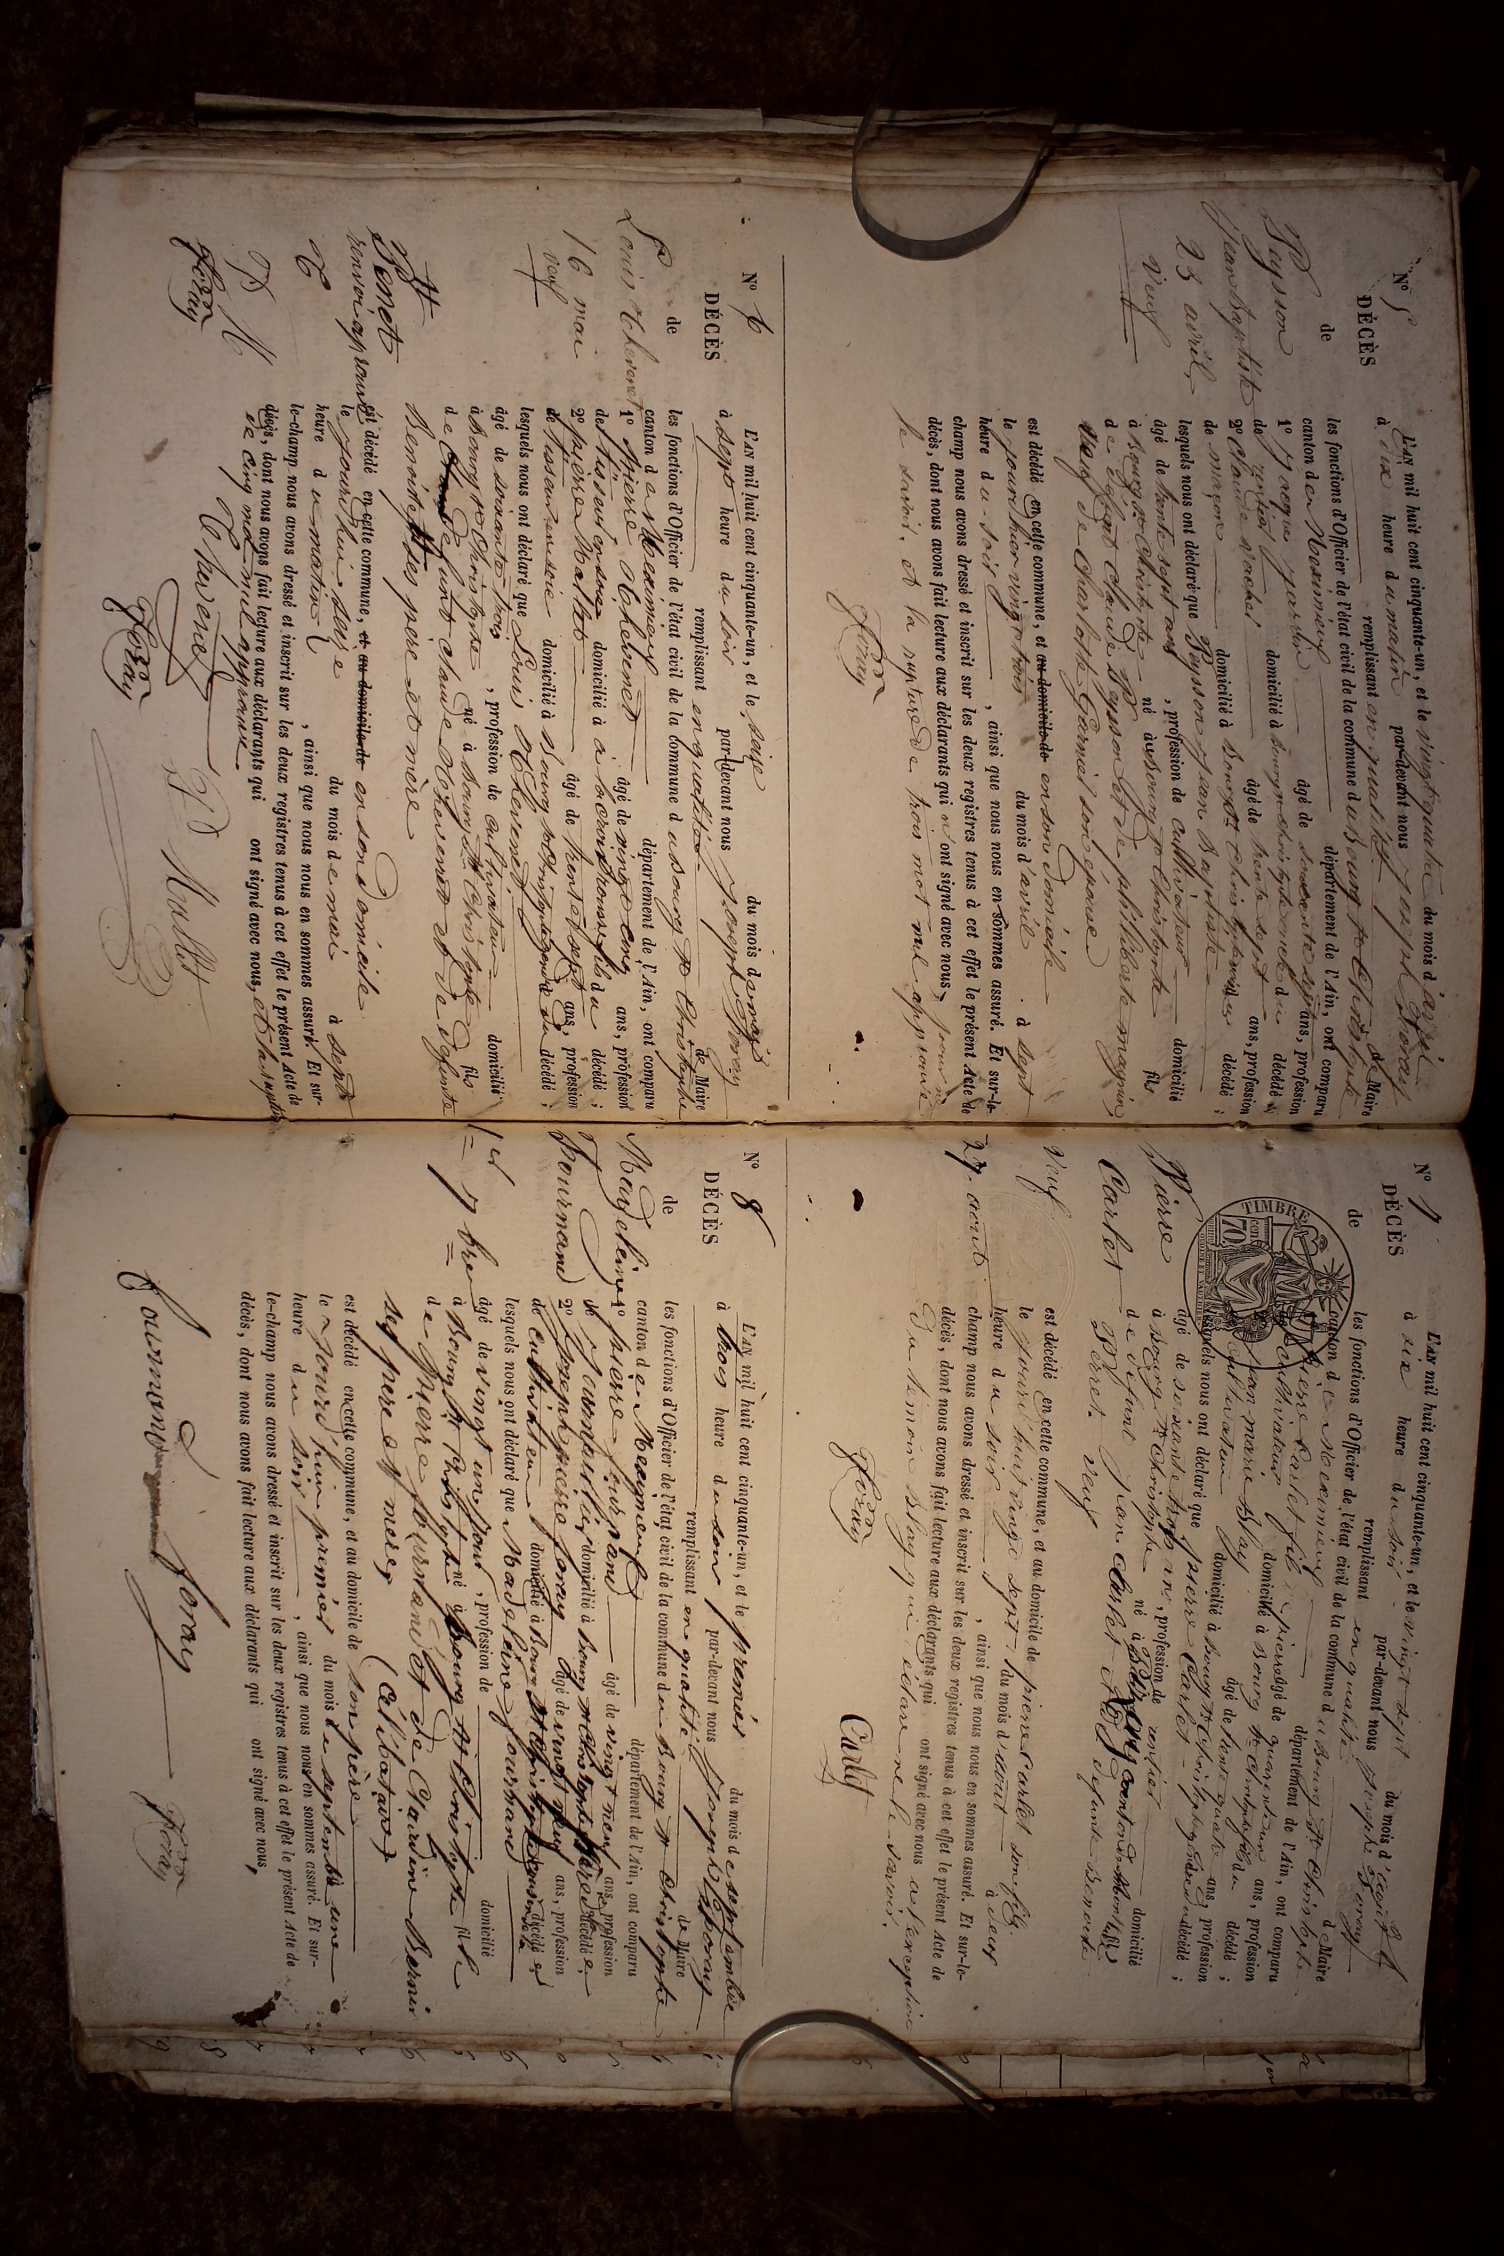 N° 5
DÉCÈS
de
Peysson
Jean Baptiste
23 avril
Veuf
L'AN mil huit cent cinquante-un, et le vingt quatre du mois d'avril
à dix heure du matin par-devant nous Joseph Foray
remplissant en qualité de Maire
les fonctions d'Officier de l'état civil de la commune du Bourg St Christophe
canton de Meximieux département de l'Ain, ont comparu
1° âgé de soixante sept ans, profession
de rentier domicilié à Bourg St christophe du décédé ;
2° Claude âgé de trente sept ans, profession
de maçon domicilié à Bourg St Christophe décédé ;
lesquels nous ont déclaré que Peysson Jean Baptiste
âgé de sept ans, profession de cultivateur domicilié
à Bourg St Christophe né à Bourg St Christophe fils
de défunt Claude Peysson et de philiberte
Veuf de Charlotte Garnier son épouse
est décédé en cette commune, et au domicile de en son domicile
le jour d'hier vingt trois du mois d'avril à sept
heure du soir, ainsi que nous nous en sommes assuré. Et sur-le-
champ nous avons dressé et inscrit sur les deux registres tenus à cet effet le présent Acte de
décès, dont nous avons fait lecture aux déclarants qui n'ont signé avec nous, pour ne
le savoir. et la rupture de trois mot nul approuvé
Foray
N° 6
DÉCÈS
de
Louis Chevenet
16 mai
veuf
L'AN mil huit cent cinquante-un, et le seize du mois de mai
à sept heure du soir par-devant nous Joseph Foray
remplissant en qualité de Maire
les fonctions d'Officier de l'état civil de la commune du Bourg St Christophe
canton de Meximieux département de l'Ain, ont comparu
1° Pierre Chevenet âgé de vingt cinq ans, profession
de tisseur en soie domicilié à fils du décédé ;
2° pierre Mallet âgé de trente sept ans, profession
de tisseur en soie domicilié à Bourg St Christophe gendre du décédé ;
lesquels nous ont déclaré que Louis Chevenet
âgé de soixante trois, profession de cultivateur domicilié
à Bourg St Christophe né à Bourg St Christophe fils
de défunt Claude Chevenet et de défunte
Benoite ses père et mère
est décédé en cette commune, et au domicile de en son domicile
le jourd'hui seize du mois de mai à sept
heure du matin, ainsi que nous nous en sommes assuré. Et sur-
le-champ nous avons dressé et inscrit sur les deux registres tenus à cet effet le présent Acte de
décès, dont nous avons fait lecture aux déclarants qui ont signé avec nous, et la rupture
de cinq mot nul approuvé
Bonet
renvoi approuvé
C
P M
Foray
Chevenet
P Mallet
Foray
N° 7
DÉCÈS
de
Pierre
Carlet
Veuf
27 août
TIMBRE
70 cen
L'AN mil huit cent cinquante-un, et le vingt sept du mois d'août
à six heure du soir par-devant nous Joseph Foray
remplissant en qualité d Maire
les fonctions d'Officier de l'état civil de la commune du Bourg St Christophe
canton de Meximieux département de l'Ain, ont comparu
pierre Carlet fils de pierre âgé de quarante un ans, profession
de cultivateur domicilié à Bourg St christophe fils du décédé ;
Jean marie Blay âgé de trente quatre ans, profession
de cultivateur domicilié à Bourg St Christophe gendre du décédé ;
lesquels nous ont déclaré que pierre Carlet
âgé de soixante ans, profession de rentier domicilié
à Bourg St Christophe né à canton de Montluel fils
de défunt jean Carlet et de défunte Benoite
Perret. Veuf
est décédé en cette commune, et au domicile de pierre Carlet son fils
le jourd'hui vingt sept du mois d'août à deux
heure du soir, ainsi que nous nous en sommes assuré. Et sur-le-
champ nous avons dressé et inscrit sur les deux registres tenus à cet effet le présent Acte de
décès, dont nous avons fait lecture aux déclarants qui ont signé avec nous a l'exception
du témoin Blay qui déclare ne le savoir.
Foray
Carlet
N° 8
DÉCÈS
de
Magdeline
Fournand
1er 7bre
L'AN mil huit cent cinquante-un, et le premier du mois de septembre
à trois heure du soir par-devant nous Joseph Foray
remplissant en qualité de Maire
les fonctions d'Officier de l'état civil de la commune du Bourg St Christophe
canton de Meximieux département de l'Ain, ont comparu
1° pierre fournand âgé de vingt neuf ans, profession
de journalier domicilié à Bourg St christophe père de décédé e
2° Joseph pierre foray âgé de vingt neuf ans, profession
de cultivateur domicilié à Bourg St Christophe cousin de la décédé e
lesquels nous ont déclaré que Madeleine fournand
âgé de vingt un jour, profession de domicilié
à Bourg St Christophe né à Bourg St Christophe fille
de Pierre fournand et de Claudine Bernin
ses pere et mere, (Célibataire)
est décédé en cette commune, et au domicile de son père
le jourd'hui premier du mois de septembre à une
heure du soir, ainsi que nous nous en sommes assuré. Et sur-
le-champ nous avons dressé et inscrit sur les deux registres tenus à cet effet le présent Acte de
décès, dont nous avons fait lecture aux déclarants qui ont signé avec nous,
fournand
J foray
Foray